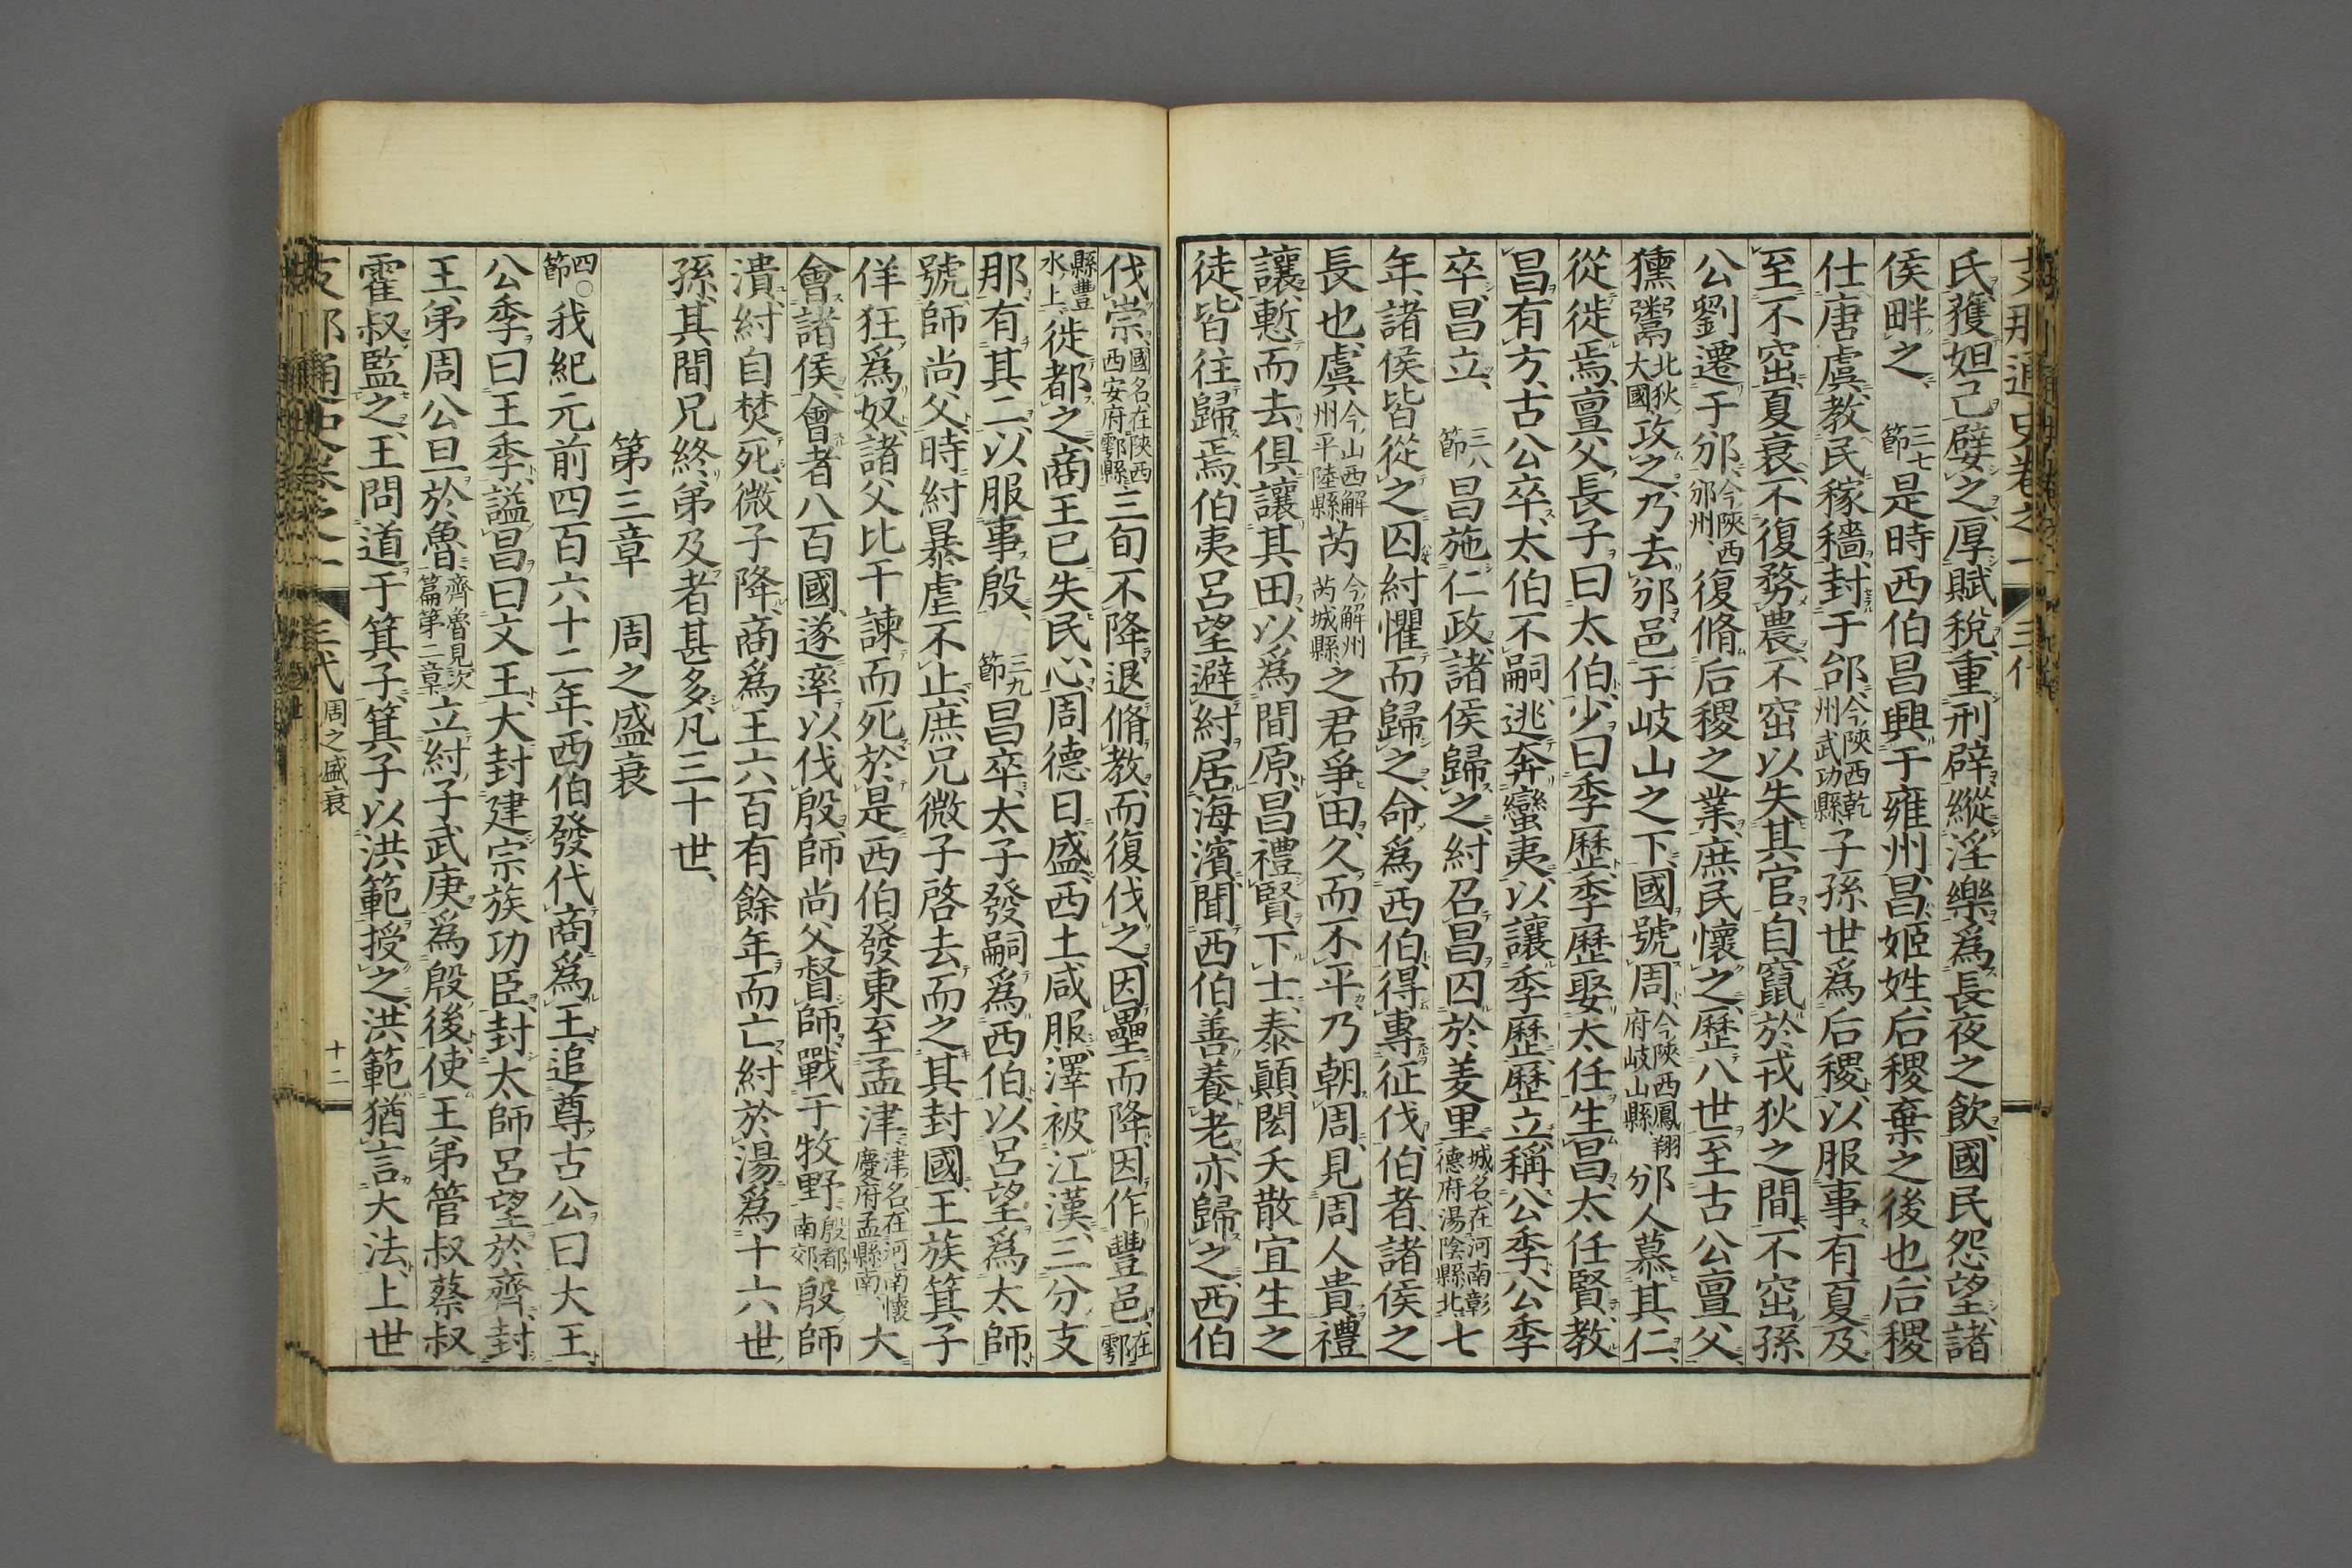 氏、獲妲己嬖之、厚賦稅、重刑辟、縱淫樂、爲長夜之飮、國民怨望、諸
侯畔之 三七節 是時西伯昌興于雍州、昌、姬姓、后稷棄之後也、后稷
仕唐虞、敎民稼穡、封于邰 今陝西乾州武功縣 子孫世爲后稷、以服事有夏、及
至不窋、夏衰、不復務農、不窋以失其官、自竄於戎狄之間、不窋孫
公劉遷于邠、今陝西邠州、復脩后稷之業、庶民懷之、歷八世至古公亶父、
獯鬻 北狄大國 攻之、乃去邠、邑于岐山之下、國號周、今陝西鳳翔府岐山縣、邠人慕其仁、
從徙焉、亶父長子曰太伯、少曰季歷、季歷娶太任生昌、太任賢、敎
昌有方、古公卒、太伯不嗣、逃奔蠻夷、以讓季歷、歷立、稱公季、公季
卒、昌立、 三八節 昌施仁政、諸侯歸之、紂召昌囚於羑里、城名、在河南彰德府湯陰縣北、七
年、諸侯皆從之囚、紂懼而歸之、命爲西伯、得專征伐、伯者、諸侯之
長也、虞、今山西解州平陸縣 芮 今解州芮城縣、之君爭田、久而不平、乃朝周、見周人貴禮
讓、慙而去、俱讓其田、以爲間原、昌禮賢下士、泰顚閎夭散宜生之
徒、皆往歸焉、伯夷呂望避紂居海濱、聞西伯善養老、亦歸之、西伯
伐崇、國名、在陝西西安府鄠縣、三旬不降、退脩敎、而復伐之、因壘而降、因作豐邑、在鄠
縣豐水上、徙都之、商王已失民心、周德日盛、西土咸服、澤被江漢、三分支
那、有其二、以服事殷、 三九節 昌卒、太子發嗣爲西伯、以呂望爲太師、
號師尙父、時紂暴虐不止、庶兄微子啓去而之其封國、王族箕子
佯狂爲奴、諸父比干諫而死、於是西伯發東至孟津、津名、在河南懷慶府孟縣南、大
會諸侯、會者八百國、遂率以伐殷、師尙父督師、戰于牧野、殷都南郊、殷師
潰、紂自焚死、微子降、商爲王六百有餘年而亡、紂於湯爲十六世
孫、其間兄終、弟及者甚多、凡三十世、
第三章 周之盛衰
四〇節 我紀元前四百六十二年、西伯發代商爲王、追尊古公曰大王、
公季曰王季、謚昌曰文王、大封建宗族功臣、封太師呂望於齊、封
王弟周公旦於魯、齊魯見次篇第二章、立紂子武庚爲殷後、使王弟管叔蔡叔
霍叔監之、王問道于箕子、箕子以洪範授之、洪範猶言大法、上世
支那通史卷之一 三代 周之盛衰 十二